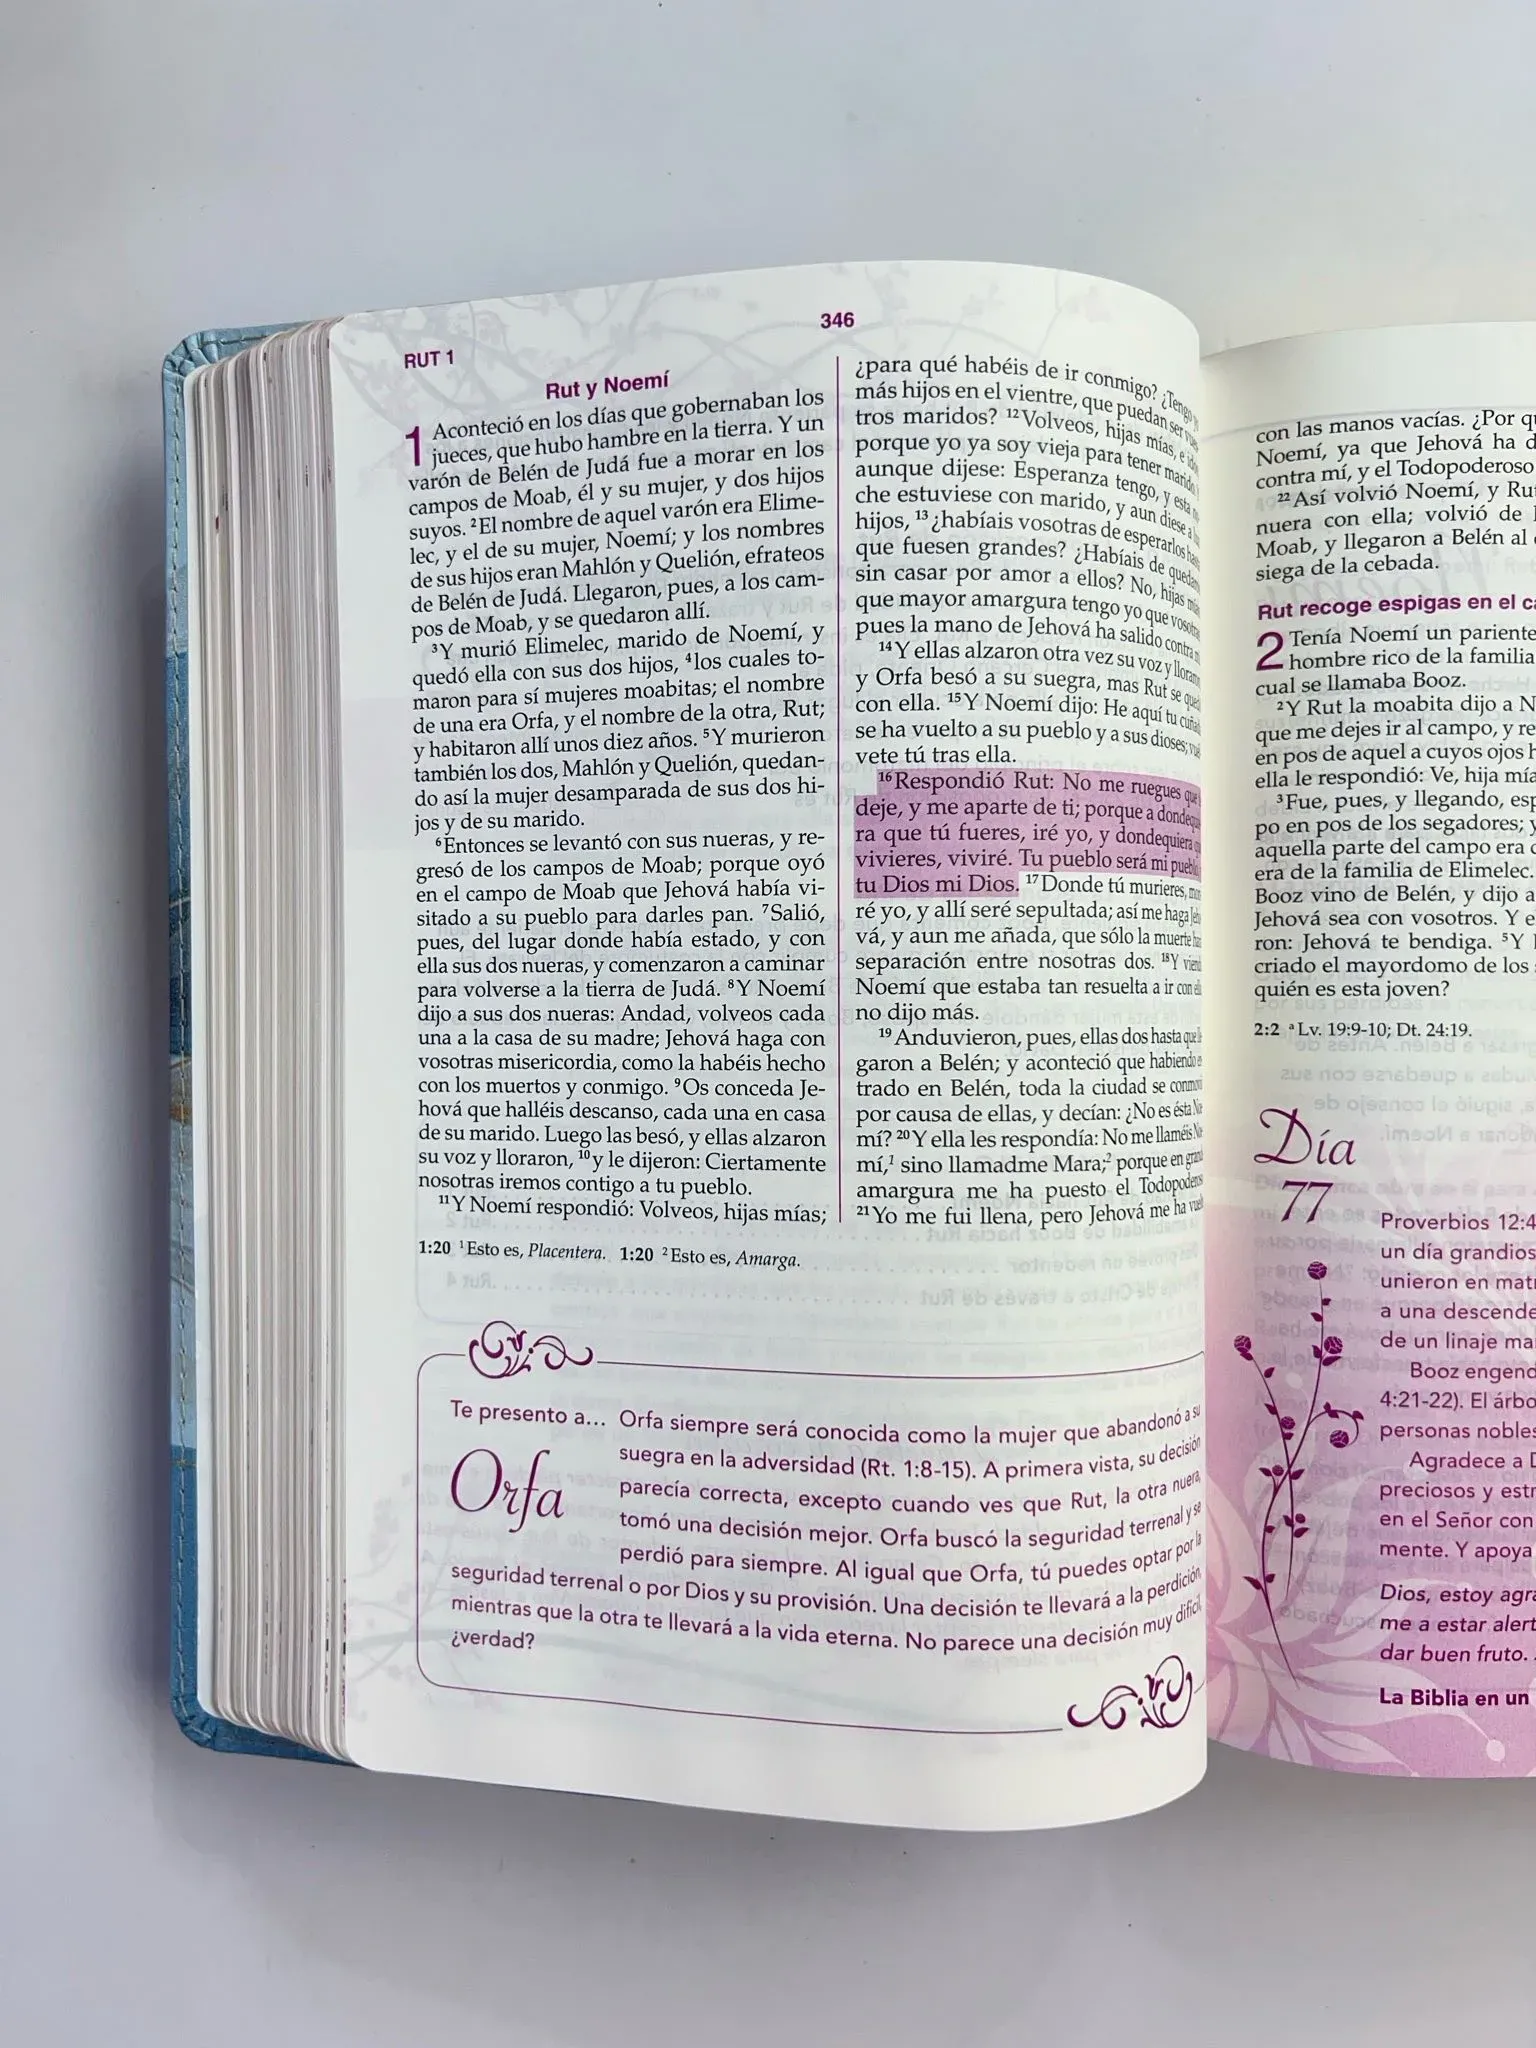 346
RUT 1
Rut y Noemí
1 Aconteció en los días que gobernaban los
jueces, que hubo hambre en la tierra. Y un
varón de Belén de Judá fue a morar en los
campos de Moab, él y su mujer, y dos hijos
suyos. 2El nombre de aquel varón era Elime-
lec, y el de su mujer, Noemí; y los nombres
de sus hijos eran Mahlón y Quelión, efrateos
de Belén de Judá. Llegaron, pues, a los cam-
pos de Moab, y se quedaron allí.
3Y murió Elimelec, marido de Noemí, y
quedó ella con sus dos hijos, 4los cuales to-
maron para sí mujeres moabitas; el nombre
de una era Orfa, y el nombre de la otra, Rut;
y habitaron allí unos diez años. 5Y murieron
también los dos, Mahlón y Quelión, quedan-
do así la mujer desamparada de sus dos hi-
jos y de su marido.
6Entonces se levantó con sus nueras, y re-
gresó de los campos de Moab; porque oyó
en el campo de Moab que Jehová había vi-
sitado a su pueblo para darles pan. 7Salió,
pues, del lugar donde había estado, y con
ella sus dos nueras, y comenzaron a caminar
para volverse a la tierra de Judá. 8Y Noemí
dijo a sus dos nueras: Andad, volveos cada
una a la casa de su madre; Jehová haga con
vosotras misericordia, como la habéis hecho
con los muertos y conmigo. 9Os conceda Je-
hová que halléis descanso, cada una en casa
de su marido. Luego las besó, y ellas alzaron
su voz y lloraron, 10y le dijeron: Ciertamente
nosotras iremos contigo a tu pueblo.
11Y Noemí respondió: Volveos, hijas mías;
¿para qué habéis de ir conmigo? ¿Tengo yo
más hijos en el vientre, que puedan ser vues
tros maridos? 12Volveos, hijas mías, e idos
porque yo ya soy vieja para tener marido.
aunque dijese: Esperanza tengo, y esta no
che estuviese con marido, y aun diese a luz
hijos, 13¿habíais vosotras de esperarlos hasta
que fuesen grandes? ¿Habíais de quedaros
sin casar por amor a ellos? No, hijas mías
que mayor amargura tengo yo que vosotras
pues la mano de Jehová ha salido contra mí
14Y ellas alzaron otra vez su voz y lloraron
y Orfa besó a su suegra, mas Rut se quedó
con ella. 15Y Noemí dijo: He aquí tu cuñada
se ha vuelto a su pueblo y a sus dioses;
vete tú tras ella.
16Respondió Rut: No me ruegues que
deje, y me aparte de ti; porque a dondequ
ra que tú fueres, iré yo, y dondequiera que
vivieres, viviré. Tu pueblo será mi pueblo,
tu Dios mi Dios. 17Donde tú murieres,
ré yo, y allí seré sepultada; así me haga Jeho
vá, y aun me añada, que sólo la muerte
separación entre nosotras dos. 18Y viendo
Noemí que estaba tan resuelta a ir con ella
no dijo más.
19Anduvieron, pues, ellas dos hasta que
garon a Belén; y aconteció que habiendo
trado en Belén, toda la ciudad se conmovió
por causa de ellas, y decían: ¿No es ésta Noe
mí? 20Y ella les respondía: No me llaméis Noe
mí,1 sino llamadme Mara;2 porque en grande
amargura me ha puesto el Todopoderoso
21Yo me fui llena, pero Jehová me ha vuelto
1:20 1Esto es, Placentera. 1:20 2Esto es, Amarga.
Te presento a...
Orfa
Orfa siempre será conocida como la mujer que abandonó a su
suegra en la adversidad (Rt. 1:8-15). A primera vista, su decisión
parecía correcta, excepto cuando ves que Rut, la otra nuera,
tomó una decisión mejor. Orfa buscó la seguridad terrenal y se
perdió para siempre. Al igual que Orfa, tú puedes optar por la
seguridad terrenal o por Dios y su provisión. Una decisión te llevará a la perdición,
mientras que la otra te llevará a la vida eterna. No parece una decisión muy difícil,
¿verdad?
con las manos vacías. ¿Por qu
Noemí, ya que Jehová ha d
contra mí, y el Todopoderoso
22Así volvió Noemí, y Rut
nuera con ella; volvió de
Moab, y llegaron a Belén al
siega de la cebada.
Rut recoge espigas en el ca
2 Tenía Noemí un pariente
hombre rico de la familia
cual se llamaba Booz.
2Y Rut la moabita dijo a N
que me dejes ir al campo, y re
en pos de aquel a cuyos ojos h
ella le respondió: Ve, hija mía
3Fue, pues, y llegando, esp
po en pos de los segadores; y
aquella parte del campo era d
era de la familia de Elimelec.
Booz vino de Belén, y dijo a
Jehová sea con vosotros. Y e
ron: Jehová te bendiga. 5Y
criado el mayordomo de los s
quién es esta joven?
2:2 aLv. 19:9-10; Dt. 24:19.
Día
77
Proverbios 12:4
un día grandios
unieron en matr
a una descende
de un linaje ma
Booz engend
4:21-22). El árbo
personas nobles
Agradece a D
preciosos y estr
en el Señor con
mente. Y apoya
Dios, estoy agra
me a estar alert
dar buen fruto.
La Biblia en un